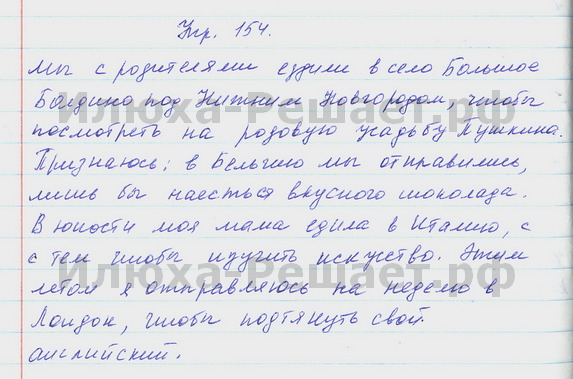 Упр. 154.
Мы с родителями ездили в село Большое
Болдино под Нижним Новгородом, чтобы
Илюха-Решает.рф
посмотреть на родовую усадьбу Пушкина.
Признаюсь: в Бельгию мы отправились,
лишь бы наесться вкусного шоколада.
В юности моя мама ездила в Италию, с
с тем чтобы изучить искусство. Этим
Илюха-Решает.рф
летом я отправляюсь на неделю в
Лондон, чтобы подтянуть свой
английский.